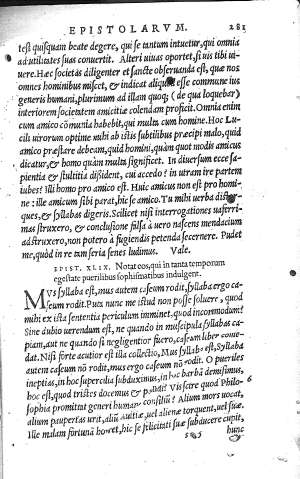 EPISTOLARVM. 281
test quisquam beate degere, qui se tantum intuetur, qui omnia
ad utilitates suas convertit. Alteri uiuas oportet, si uis tibi ui-
uere. Hæc societas diligenter et sancte obseruanda est, quæ nos
omnes hominibus miscet, & indicat aliquod esse commune ius
generis humani, plurimum ad illam quoq; (de qua loquebar)
interiorem societatem amicitiæ colendam proficit. Omnia enim
cum amico cōmunia habebit, qui multa cum homine. Hoc Lu-
cili uirorum optime mihi ab istis subtilibus præcipi malo, quid
amico præstare debeam, quid homini, quàm quot modis amicus
dicatur, & homo quàm multa significet. In diuersum ecce sa-
pientia & stultitia disident, cui accedo? in utram ire partem
iubes? Illi homo pro amico est. Huic amicus non est pro homi-
ne: ille amicum sibi parat, hic se amico. Tu mihi uerba distor-
ques, & syllabas digeris. Scilicet nisi interrogationes uaferri-
mas struxero, & conclusione falsa à uero nascens mendacium
adstruxero, non potero à fugiendis petenda secernere. Pudet
me, quòd in re tam seria senes ludimus. Vale.
EPIST. XLIX. Notat eos, qui in tanta temporum
egestate puerilibus sophismatibus indulgent.
MVs syllaba est, mus autem caseum rodit, syllaba ergo ca-
seum rodit. Puta nunc me istud non posse soluere, quod
mihi ex ista sententia periculum imminet, quod incommodum?
Sine dubio uerendum est, ne quando in muscipula syllabas ca-
piam, aut ne quando si negligentior fuero, caseum liber come-
dat. Nisi forte acutior est illa collectio, Mus syllaba est, Syllaba
autem caseum nō rodit, mus ergo caseum nō rodit. O pueriles
ineptias, in hoc supercilia subduximus, in hoc barbā demisimus,
hoc est, quod tristes docemus & pallidi? Vis scire quid Philo- 6
sophia promittat generi humano? consilium? Alium mors uocat,
alium paupertas urit, aliū diuitiæ, uel alienæ torquent, uel suæ.
Ille malam fortunā horret, hic se felicitati suæ subducere cupit,
s 5 hunc